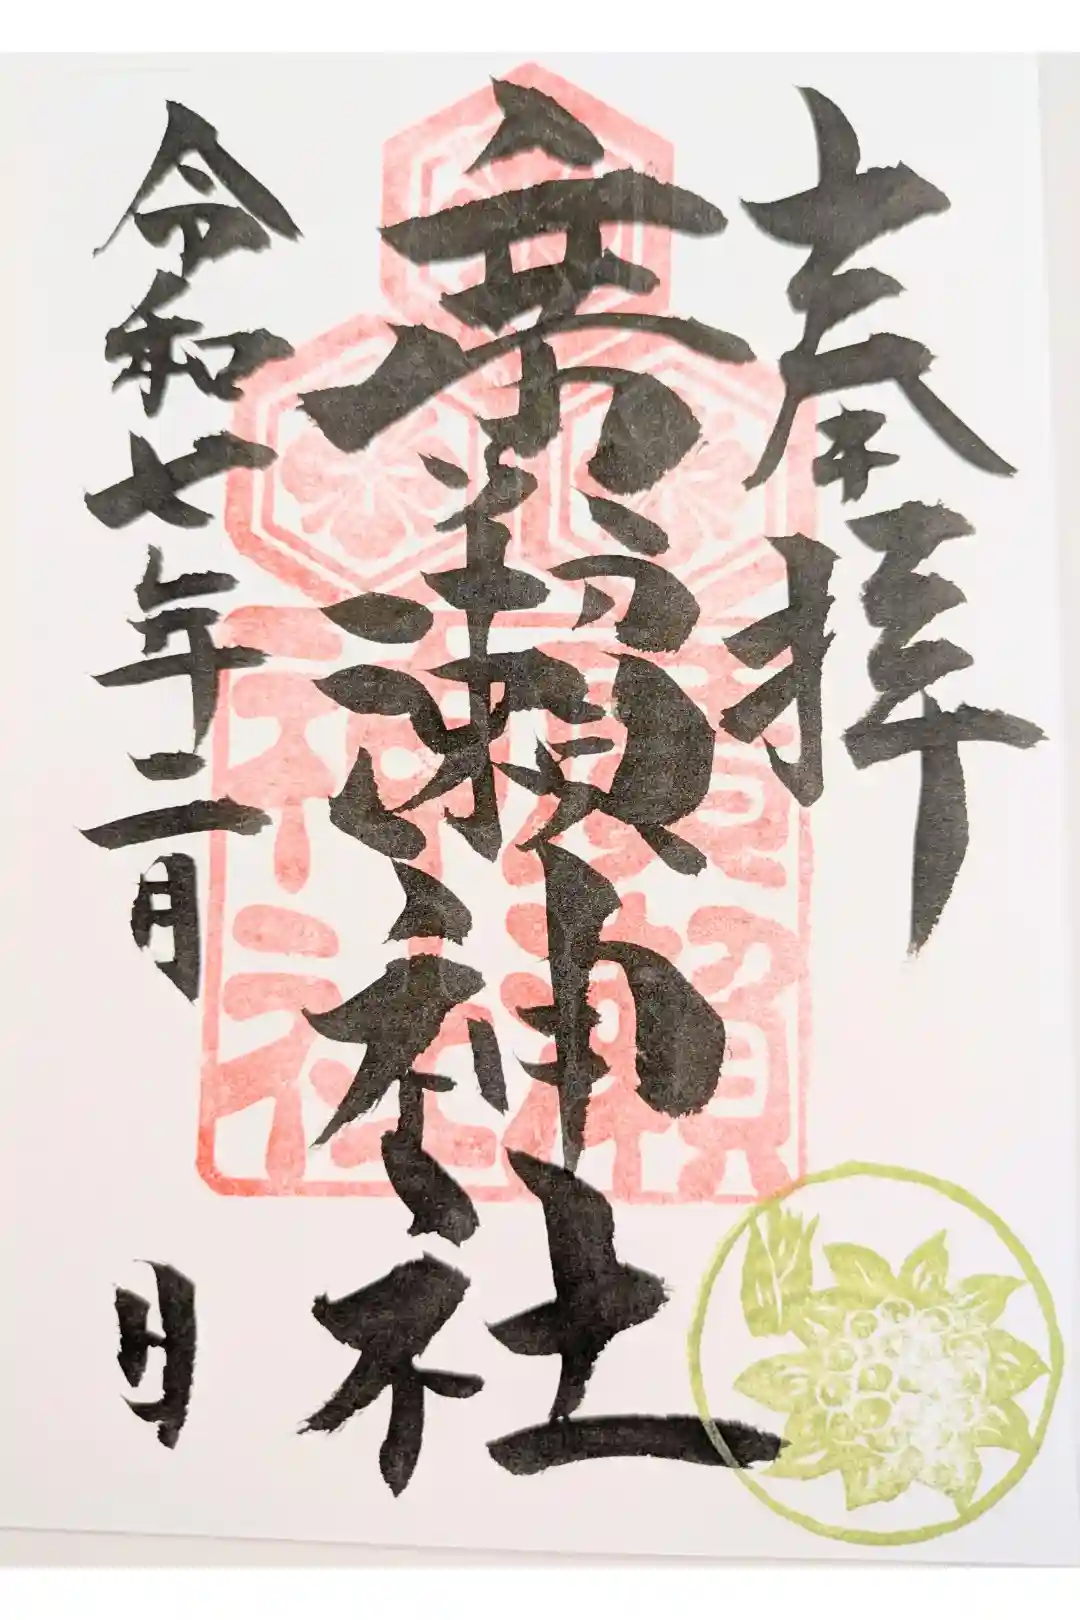 奉拝
瀬神社
令和七年二月 日
瀬
神社